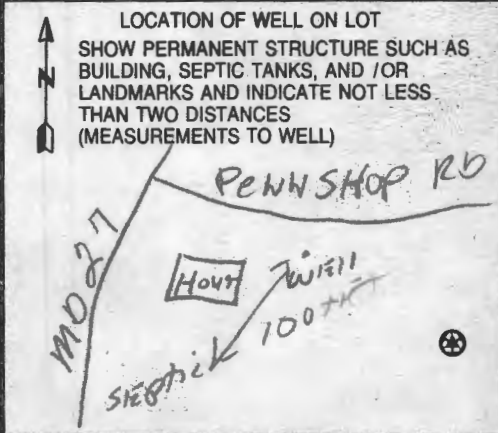 LOCATION OF WELL ON LOT
SHOW PERMANENT STRUCTURE SUCH AS
BUILDING, SEPTIC TANKS, AND /OR
LANDMARKS AND INDICATE NOT LESS
THAN TWO DISTANCES
(MEASUREMENTS TO WELL)
N
PENN SHOP RD
MD 27
WELL
100
SEPTIC